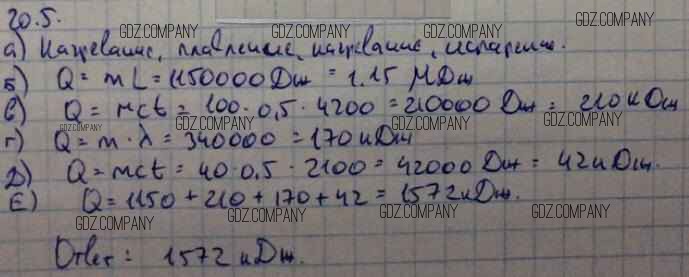 20.5.
а) Нагревание, плавление, нагревание, испарение.
б) Q = mL = 1150000 Дж = 1.15 МДж
в) Q = mct = 100·0,5·4200 = 210000 Дж = 210 кДж
г) Q = m·λ = 340000 = 170 кДж
д) Q = mct = 40·0.5·2100 = 42000 Дж = 42 кДж.
Е) Q = 1150 + 210 + 170 + 42 = 1572 кДж.
Ответ: 1572 кДж.
GDZ.COMPANY
GDZ.COMPANY
GDZ.COMPANY
GDZ.COMPANY
GDZ.COMPANY
GDZ.COMPANY
GDZ.COMPANY
GDZ.COMPANY
GDZ.COMPANY
GDZ.COMPANY
GDZ.COMPANY
GDZ.COMPANY